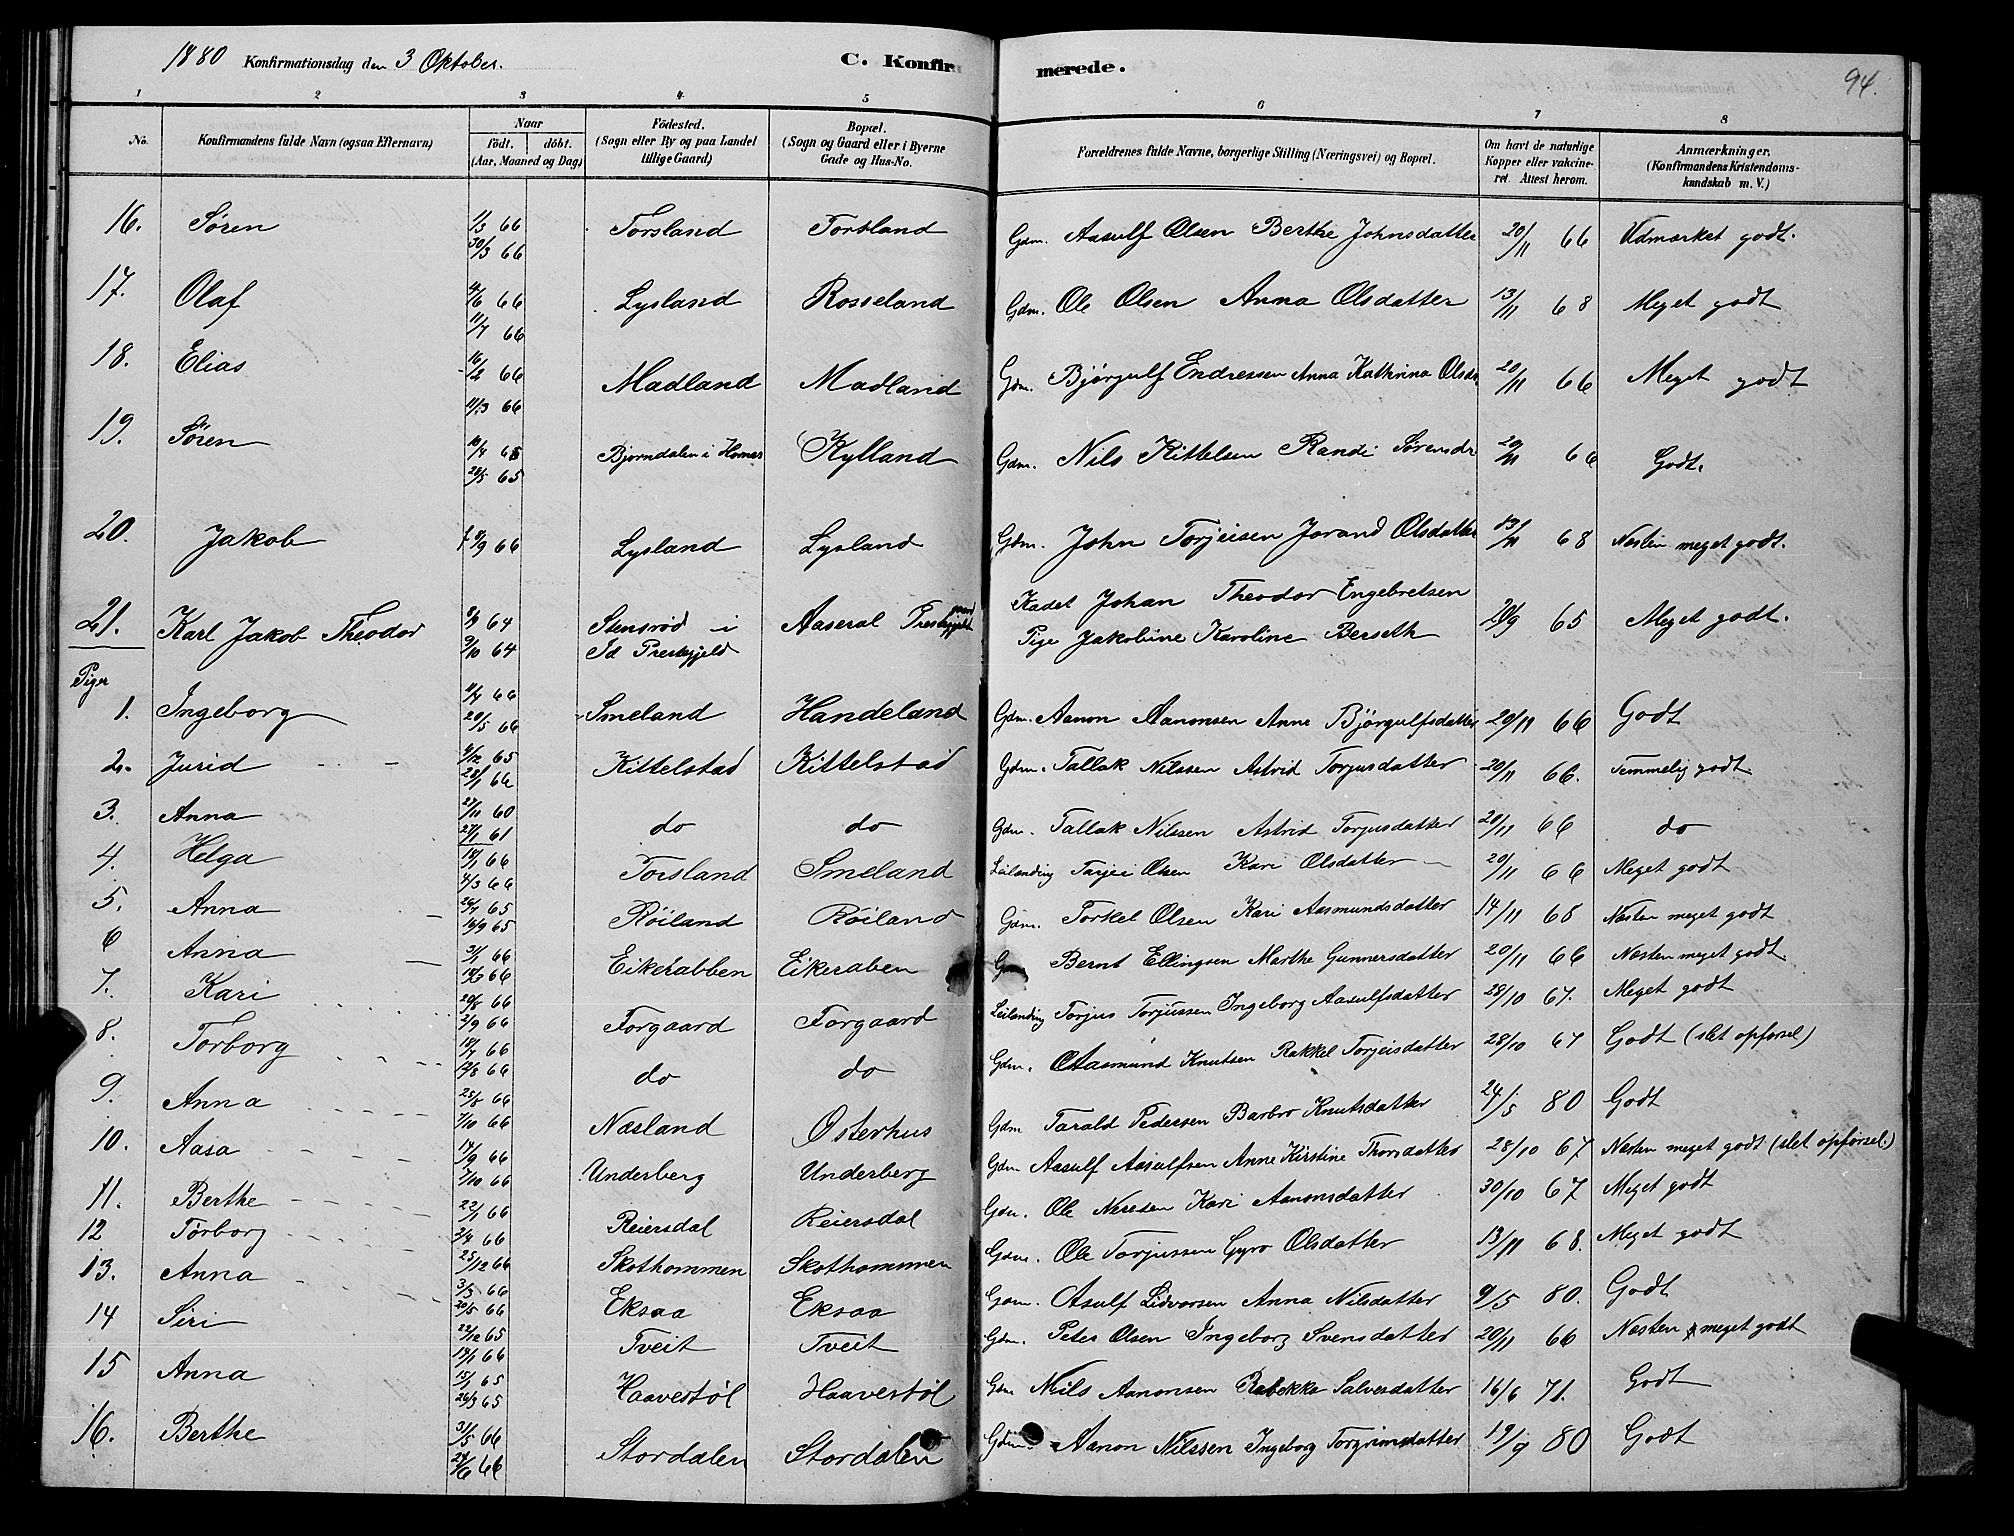 1880 Konfirmationsdag den 3 Oktober.
C. Konfirmerede.
94.
1 2 3 4 5 6 7 8
No. Konfirmandens fulde Navn (ogsaa Efternavn) Naar födt. döbt. (Aar, Maaned og Dag) Födested. (Sogn eller By og paa Landet tillige Gaard) Bopæl. (Sogn og Gaard eller i Byerne Gade og Hus-No. Forældrenes fulde Navne, borgerlige Stilling (Næringsvei) og Bopæl. Om havt de naturlige Kopper eller vakcineret. Attest herom. Anmærkninger. (Konfirmandens Kristendomskundskab m. V.)
16. Søren 1/3 66 30/3 66 Torsland Torsland Gdm. Aasulf Olsen Berthe Johnsdatter 20/11 66 Udmærket godt.
17. Olaf 4/6 66 11/7 66 Lysland Rosseland Gdm. Ole Olsen Anna Olsdatter 13/11 68 Meget godt
18. Elias 16/2 66 11/3 66 Madland Madland Gdm. Bjørgulf Endressen Anna Kathrina Olsdr 20/11 66 Meget godt
19. Søren 10/4 65 28/5 65 Bjorndalen i Hornes Kylland Gdm. Nils Kittelsen Randi Sørensdr 20/11 66 Godt.
20. Jakob 9/9 66 Lysland Lysland Gdm. John Torjeisen Jorand Olsdatter 13/11 68 Næsten meget godt.
21. Karl Jakob Theodor 8/9 64 9/10 64 Stensrød i Id Prestegjeld Aaseral Prestegjeld Kadet Johan Theodor Engebretsen Pige Jakobine Karoline Berseth 20/9 65 Meget godt.
Piger
1. Ingeborg 11/4 66 20/5 66 Smeland Handeland Gdm. Aanon Aanonsen Anne Bjørgulfsdatter 20/11 66 Godt
2. Jurid 4/12 65 28/1 66 Kittelstad Kittelstad Gdm. Tallak Nilssen Astrid Torjusdatter 20/11 66. Temmelig godt
3. Anna 27/11 60 27/1 61 do do Gdm. Tallak Nilssen Astrid Torjusdatter 20/11 66 do
4. Helga 18/1 66 4/3 66 Torsland Smeland Leilending Tarjei Olsen Kari Olsdatter 20/11 66 Meget godt
5. Anna 26/7 65 16/9 65 Røiland Røiland Gdm. Torkel Olsen Kari Aasmundsdatter 14/11 68 Næsten meget godt
6 Anna 3/1 66 18/2 66 Eikerabben Eikeraben Gdm Bernt Ellingsen Marthe Gunnersdatter 20/11 66 Næsten meget godt.
7. Kari 20/8 66 2/9 66 Forgaard Forgaard Leilending Torjus Torjussen Ingeborg Aasulfsdatter 28/10 67. Meget godt
8. Torborg 18/7 66 12/8 66 do do Gdm. Aasmund Knutsen Rakkel Torjeisdatter 28/10 67 Godt (slet opførsel)
9. Anna 25/8 66 7/10 66 Næsland Østerhus Gdm Tarald Pedersen Barbro Knutsdatter 24/5 80 Godt
10. Aasa 14/9 66 7/10 66 Underberg Underberg Gdm Aasulf Aasulfsen Anne Kirstine Thorsdatter 28/10 67 Næsten meget godt (slet opførsel.)
11. Berthe 22/1 66 2/4 66 Reiersdal Reiersdal Gdm. Ole Neresen Kari Aanonsdatter 30/10 67 Meget godt
12 Torborg 25/12 66 Skothommen Skothommen Gdm. Ole Torjussen Gyro Olsdatter 13/11 68. Meget godt
13. Anna 3/3 66 20/5 66 Eksaa Eksaa Gdm. Asulf Lidvorsen Anna Nilsdatter 9/5 80. Godt
14 Siri 22/12 65 14/1 66 Tveit Tveit Gdm. Peter Olsen Ingeborg Svensdatter 20/11 66 Næsten meget godt
15 Anna 15/1 65 26/3 65 Haavestøl Haavestøl Gdm Nils Aanonsen Rebekka Salvesdatter 16/6 71. Godt
16. Berthe 31/5 66 24/6 66 Stordalen Stordalen Gdm. Aanon Nilssen Ingeborg Torgrimsdatter 19/9 80 Godt